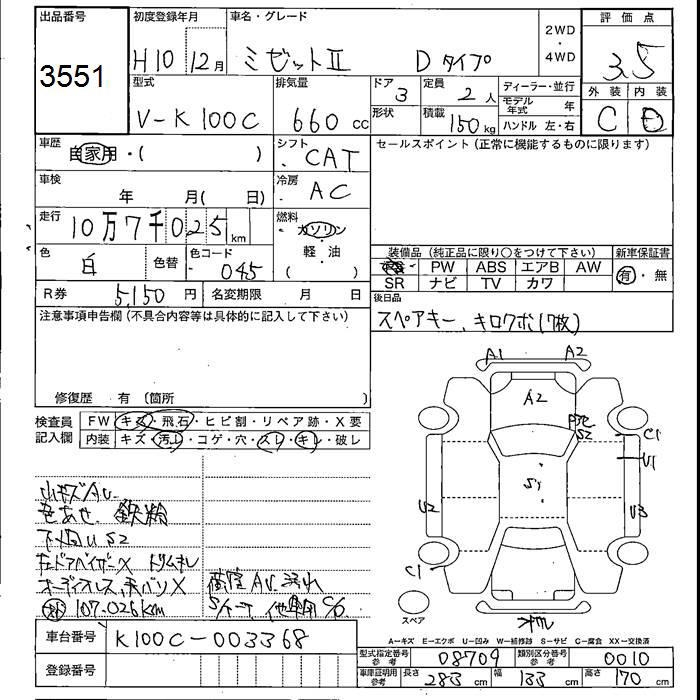 出品番号 初度登録年月 車名・グレード 2WD・4WD 評価点
3551 H10 12月 ミゼットⅡ Dタイプ 3.5
型式 排気量 ドア 3 定員 2人 ディーラー・並行 外装 内装
V-K100C 660cc 形状 積載 150kg モデル年式 年 C D
ハンドル 左・右
車歴 自家用・( ) シフト CAT セールスポイント(正常に機能するものに限ります)
車検 年 月( 日) 冷房 AC
走行 10万7千025km 燃料 ガソリン・軽油 ( )
色 白 色替 色コード 045 装備品(純正品に限り○をつけて下さい) 新車保証書
PW ABS エアB AW 有・無
SR ナビ TV カワ
R券 5,150円 名変期限 月 日 後日品
スペアキー、キロクボ(7枚)
注意事項申告欄(不具合内容等は具体的に記入して下さい)
修復歴 有(箇所 )
検査員記入欄 FW キズ・飛石・ヒビ割・リペア跡・X要
内装 キズ・汚レ・コゲ・穴・スレ・キレ・破レ
A1 A2
A2
S2 C1
U1
S1
S2 U3
C1
スペア
小キズAU
色あせ 鉄粉
下廻りU S2
オーディオレス
107.026km
A―キズ E―エクボ U―凹み W―補修跡 S―サビ C―腐食 XX―交換済
車台番号 K100C-003368
登録番号
型式指定番号 参考 08709 類別区分番号 参考 0010
車庫証明用 参考 長さ 283cm 幅 133cm 高さ 170cm